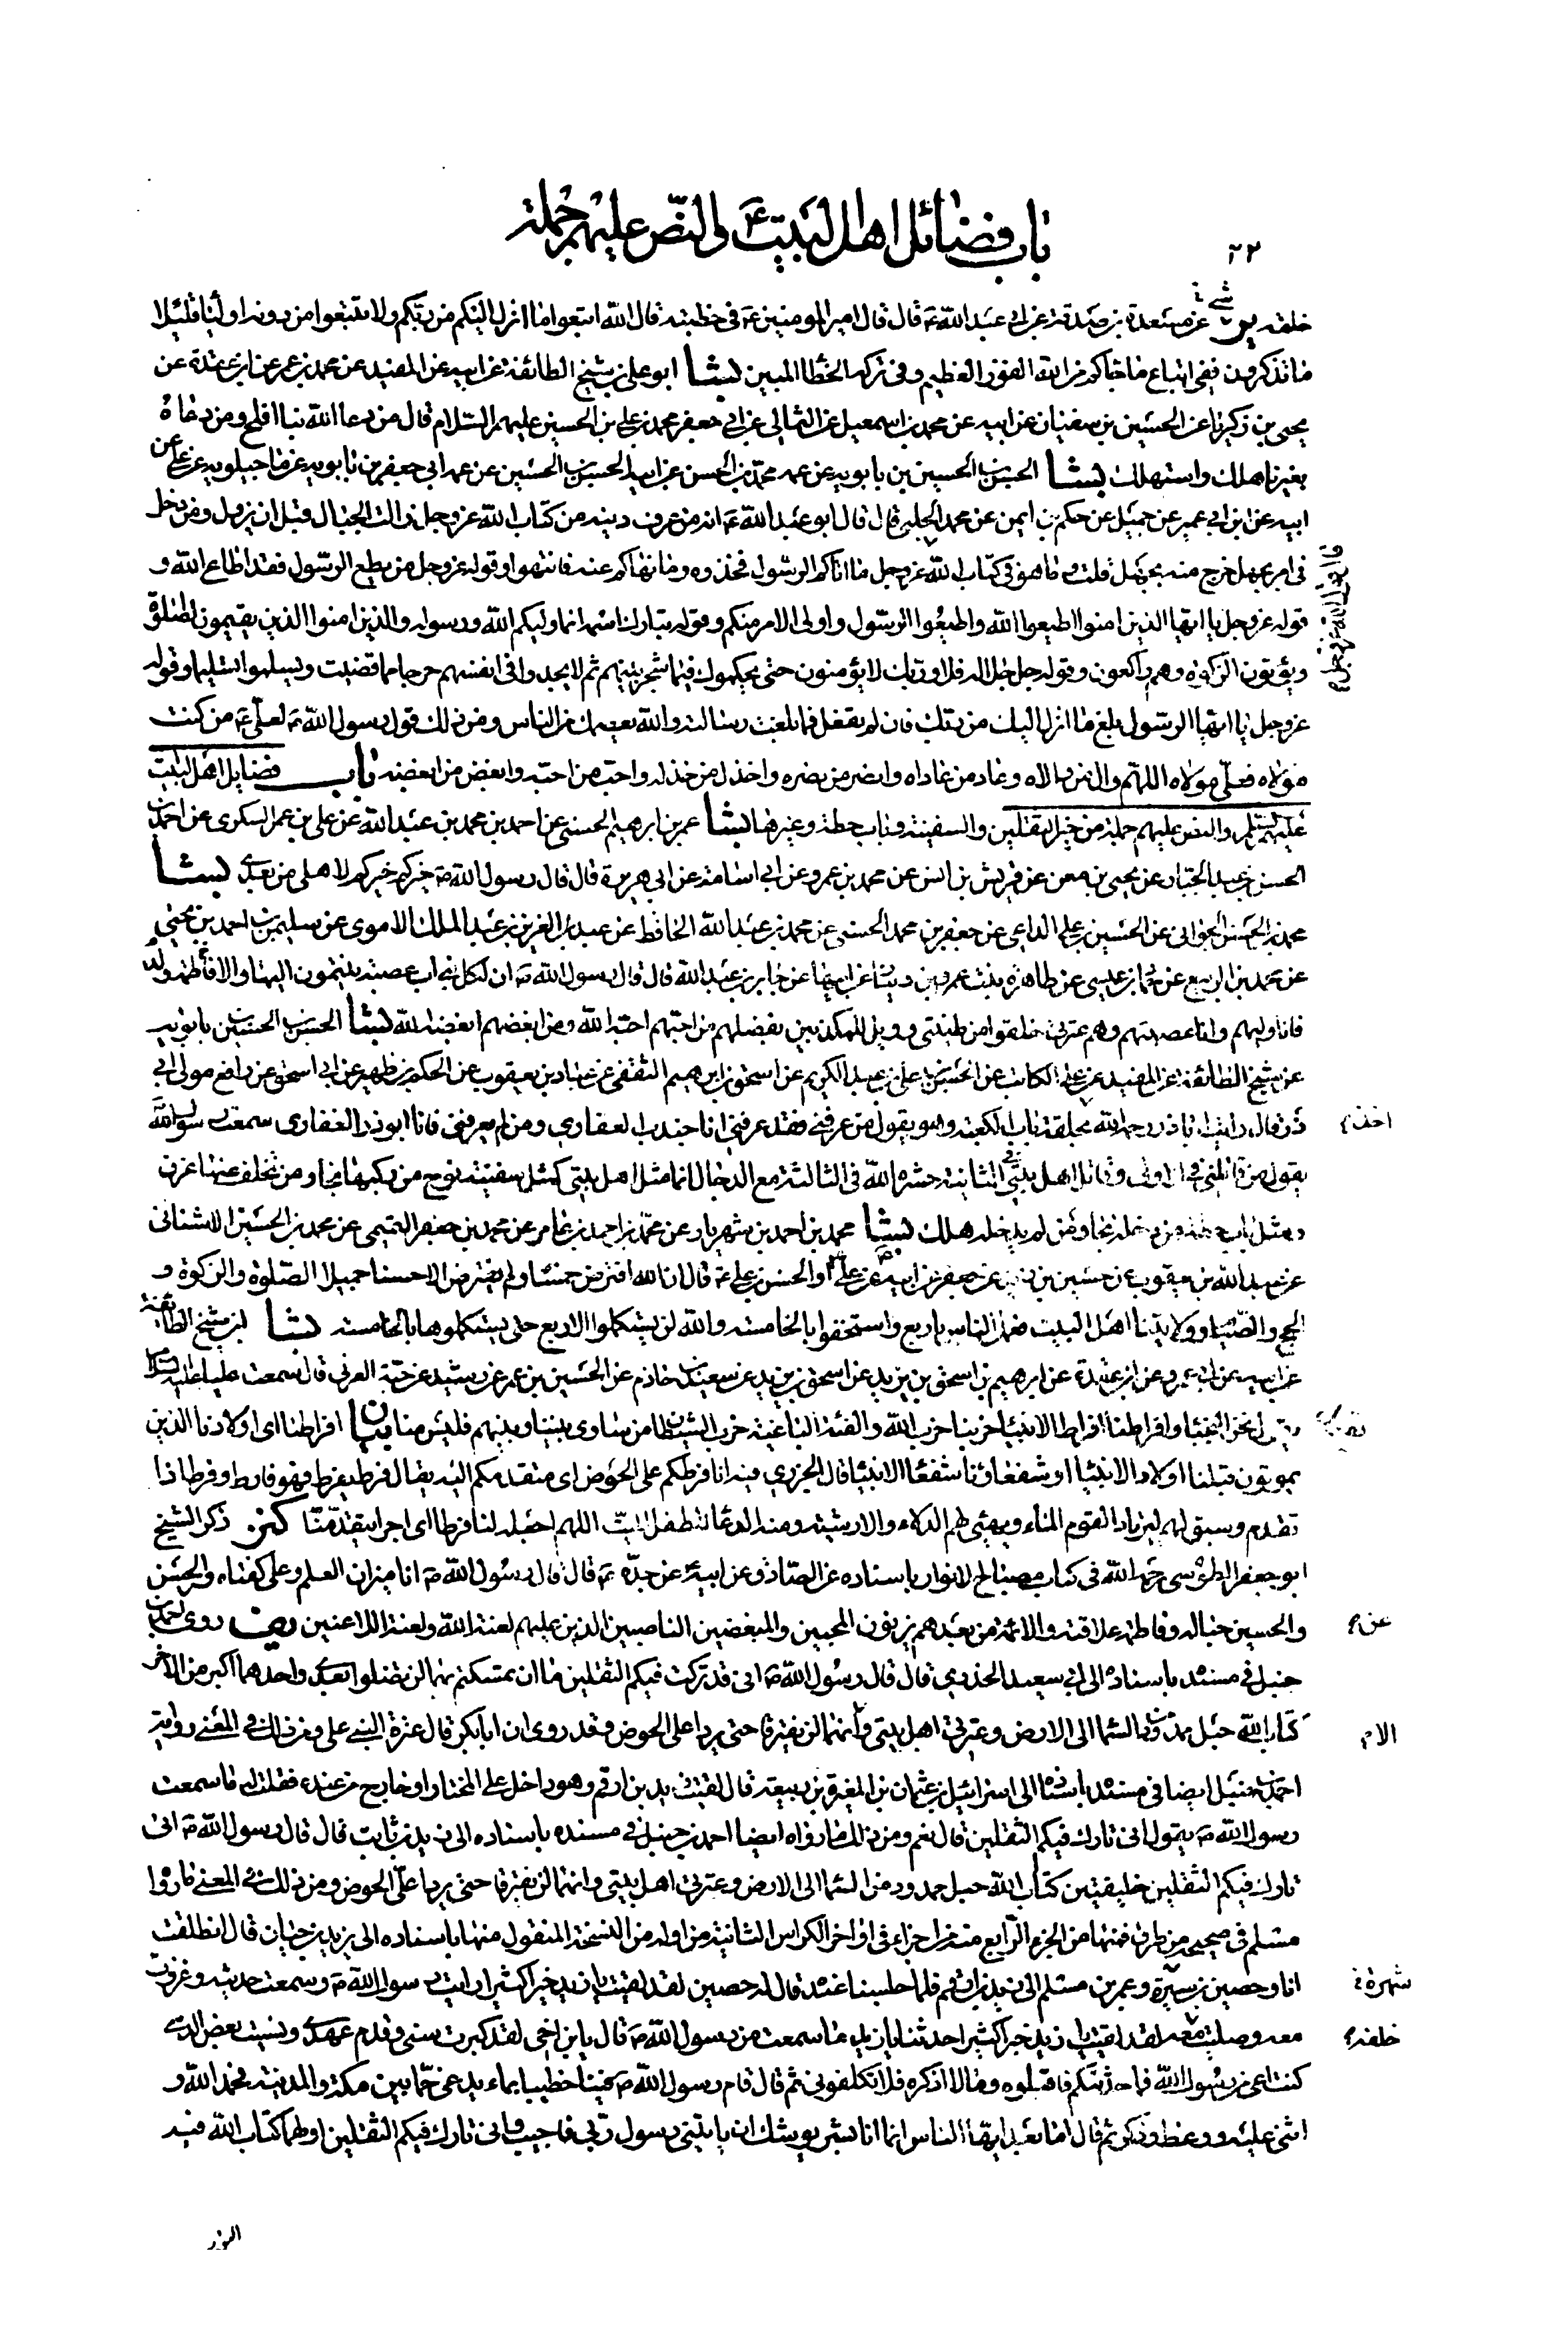 ٢٢
باب فضائل اهل البيت ع و النص عليهم جملة
خلقه شي عن مسعدة بن صدقة عن ابي عبد الله ع قال قال امير المومنين ع في خطبته قال الله اتبعوا ما انزل اليكم من ربكم ولا تتبعوا من دونه اولياء قليلا
ما تذكرون ففي اتباع ما جاءكم من الله الفوز العظيم وفي تركه الخطاء المبين بشا ابو علي بن شيخ الطائفة عن ابيه عن المفيد عن محمد بن عمر عن ابن عقدة عن
يحيى بن زكريا عن الحسين بن سفيان عن ابيه عن محمد بن اسمعيل عن الثمالي عن ابي جعفر محمد بن علي بن الحسين عليهم السلام قال من دعا الله بنا افلح ومن دعاه
بغيرنا هلك واستهلك بشا الحسن بن الحسين بن بابويه عن عمه محمد بن الحسن عن ابيه الحسن بن الحسين عن عمه ابي جعفر بن بابويه عن ماجيلويه عن علي عن
ابيه عن ابن ابي عمير عن جميل عن حكم بن ايمن عن محمد الحلبي قال قال ابو عبد الله ع انه من عرف دينه من كتاب الله عز وجل زالت الجبال قبل ان يزول ومن دخل
في امر بجهل خرج منه بجهل قلت وما هو في كتاب الله عز وجل ما اتاكم الرسول فخذوه وما نهاكم عنه فانتهوا وقوله عز وجل من يطع الرسول فقد اطاع الله و
قال قول الله عز وجل
قوله عز وجل يا ايها الذين امنوا اطيعوا الله واطيعوا الرسول واولى الامر منكم وقوله تبارك اسمه انما وليكم الله ورسوله والذين امنوا الذين يقيمون الصلوة
ويؤتون الزكوة وهم راكعون وقوله جل جلاله فلا وربك لا يؤمنون حتى يحكموك فيما شجر بينهم ثم لا يجدوا في انفسهم حرجا مما قضيت ويسلموا تسليما وقوله
عز وجل يا ايها الرسول بلغ ما انزل اليك من ربك فان لم تفعل فما بلغت رسالته والله يعصمك من الناس ومن ذلك قول رسول الله ص لعلي ع من كنت
مولاه فعلي مولاه اللهم وال من والاه وعاد من عاداه وانصر من نصره واخذل من خذله واحب من احبه وابغض من ابغضه باب فضايل اهل البيت
عليهم السلم والنص عليهم جملة من خبر الثقلين والسفينة وباب حطة وغيرها بشا عمر بن ابرهيم الحسني عن احمد بن محمد بن عبد الله عن علي بن عمر السكري عن احمد بن
الحسن بن عبد الجبار عن يحيى بن معن عن قريش بن انس عن محمد بن عمرو عن ابي اسامة عن ابي هريرة قال قال رسول الله ص خيركم خيركم لاهلي من بعدي بشا
محمد بن الحسن الجواني عن الحسين بن علي الداعي عن جعفر بن محمد الحسني عن محمد بن عبد الله الحافظ عن عبد العزيز بن عبد الملك الاموي عن سليمن بن احمد بن يحيى
عن محمد بن الربيع عن حماد بن عيسى عن طاهرة بنت عمرو بن دينار عن ابيها عن جابر بن عبد الله قال قال رسول الله ص ان لكل بني اب عصبة ينتمون اليها الا ولد فاطمة
فانا وليهم وانا عصبتهم وهم عترتي خلقوا من طينتي وويل للمكذبين بفضلهم من احبهم احبه الله ومن ابغضهم ابغضه الله بشا الحسن بن الحسين بن بابويه
عن شيخ الطائفة عن المفيد عن علي الكاتب عن الحسن بن علي بن عبد الكريم عن اسحق بن ابرهيم الثقفي عن عباد بن يعقوب عن الحكم بن ظهير عن ابي اسحق عن رافع مولى ابي
ذر قال رايت ابا ذر رحمه الله بحلقة باب الكعبة وهو يقول من عرفني فقد عرفني انا جندب الغفاري ومن لم يعرفني فانا ابو ذر الغفاري سمعت رسول الله
اخذ م
يقول من قاتلني في الاولى وقاتل اهل بيتي في الثانية حشره الله في الثالثة مع الدجال انما مثل اهل بيتي كمثل سفينة نوح من ركبها نجا ومن تخلف عنها غرق
ومثل باب حطة من دخله نجا ومن لم يدخله هلك بشا محمد بن احمد بن شهريار عن محمد بن احمد بن عامر عن محمد بن جعفر التميمي عن محمد بن الحسين الاشناني
عن عبد الله بن يعقوب عن حسين بن زيد عن جعفر عن ابيه عن علي او الحسن بن علي ع قال ان الله افترض خمسا ولم يفترض الا حسنا جميلا الصلوة والزكوة و
الحج والصيام وولايتنا اهل البيت فعمل الناس باربع واستخفوا بالخامسة والله لن يستكملوا الاربع حتى يستكملوها بالخامسة بشا ابن شيخ الطائفة
عن ابيه عن ابي عمرو عن ابن عقدة عن ابرهيم بن اسحق بن يزيد عن اسحق بن يزيد عن سعيد بن خازم عن الحسين بن عمر عن رشيد عن حبة العرني قال سمعت عليا عليه السلام
يقول نحن النجباء وافراطنا افراط الانبياء حزبنا حزب الله والفئة الباغية حزب الشيطان من ساوى بيننا وبينهم فليس منا بيان افراطنا اي اولادنا الذين
يموتون قبلنا اولاد الانبياء او شفعاؤنا شفعاء الانبياء قال الجزري فيه انا فرطكم على الحوض اي متقدمكم اليه يقال فرط يفرط فهو فارط وفرط اذا
تقدم وسبق القوم ليرتاد لهم الماء ويهيئ لهم الدلاء والارشية ومنه الدعاء للطفل الميت اللهم اجعله لنا فرطا اي اجرا يتقدمنا كنز ذكر الشيخ
ابو جعفر الطوسي رحمه الله في كتاب مصباح الانوار باسناده عن الصادق عن ابيه عن جده ع قال قال رسول الله ص انا ميزان العلم وعلي كفتاه والحسن
والحسين حباله وفاطمة علاقته والائمة من بعدهم يزنون المحبين والمبغضين الناصبين الذين عليهم لعنة الله ولعنة اللاعنين يف روى احمد بن
عن م
حنبل في مسنده باسناده الى ابي سعيد الخدري قال قال رسول الله ص اني قد تركت فيكم الثقلين ما ان تمسكتم بهما لن تضلوا بعدي واحدهما اكبر من الاخر
كتاب الله حبل ممدود من السماء الى الارض وعترتي اهل بيتي وانهما لن يفترقا حتى يردا على الحوض وقد روى ان ابا بكر قال عترة النبي علي ومن ذلك في المعنى رواية
الا م
احمد بن حنبل ايضا في مسنده باسناده الى اسرائيل بن عثمان بن المغيرة بن ربيعة قال لقيت زيد بن ارقم وهو داخل على المختار او خارج من عنده فقلت له ما سمعت
رسول الله ص يقول اني تارك فيكم الثقلين قال نعم ومن ذلك ما رواه ايضا احمد بن حنبل في مسنده باسناده الى زيد بن ثابت قال قال رسول الله ص اني
تارك فيكم الثقلين خليفتين كتاب الله حبل ممدود من السماء الى الارض وعترتي اهل بيتي وانهما لن يفترقا حتى يردا على الحوض ومن ذلك في المعنى ما رواه
مسلم في صحيحه من طرق فمنها من الجزء الرابع منه من اجزاء في اواخر الكراس الثانية من اوله من النسخة المنقول منها باسناده الى يزيد بن حيان قال انطلقت
انا وحصين بن سبرة وعمر بن مسلم الى زيد بن ارقم فلما جلسنا عنده قال له حصين لقد لقيت يا زيد خيرا كثيرا رايت رسول الله ص وسمعت حديثه وغزوت
شهرة خ
معه وصليت معه لقد لقيت يا زيد خيرا كثيرا حدثنا يا زيد ما سمعت من رسول الله ص قال يا بن اخي لقد كبرت سني وقدم عهدي ونسيت بعض الذي
خلفه م
كنت اعي من رسول الله فما حدثتكم فاقبلوه وما لا اذكره فلا تكلفوني ثم قال قام رسول الله ص فينا خطيبا بماء يدعى خما بين مكة والمدينة فحمد الله و
اثنى عليه ووعظ وذكر ثم قال اما بعد ايها الناس انما انا بشر يوشك ان ياتيني رسول ربي فاجيب واني تارك فيكم الثقلين اولهما كتاب الله فيه
النور